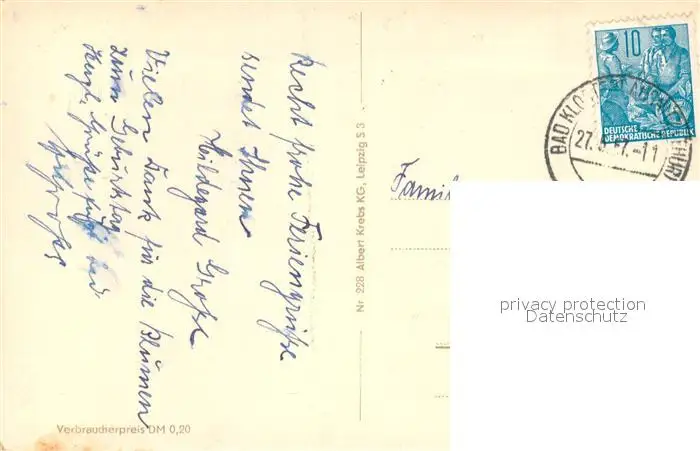 Recht frohe Feriengrüße
sendet Ihnen
Hildegard Große
Vielen Dank für die Blumen
zum Geburtstag
Herzl. Grüße
Verbraucherpreis DM 0,20
Nr 228 Albert Krebs KG, Leipzig S 3
10
DEUTSCHE
DEMOKRATISCHE REPUBLIK
BAD KLO
27.
-11
Famil
privacy protection
Datenschutz